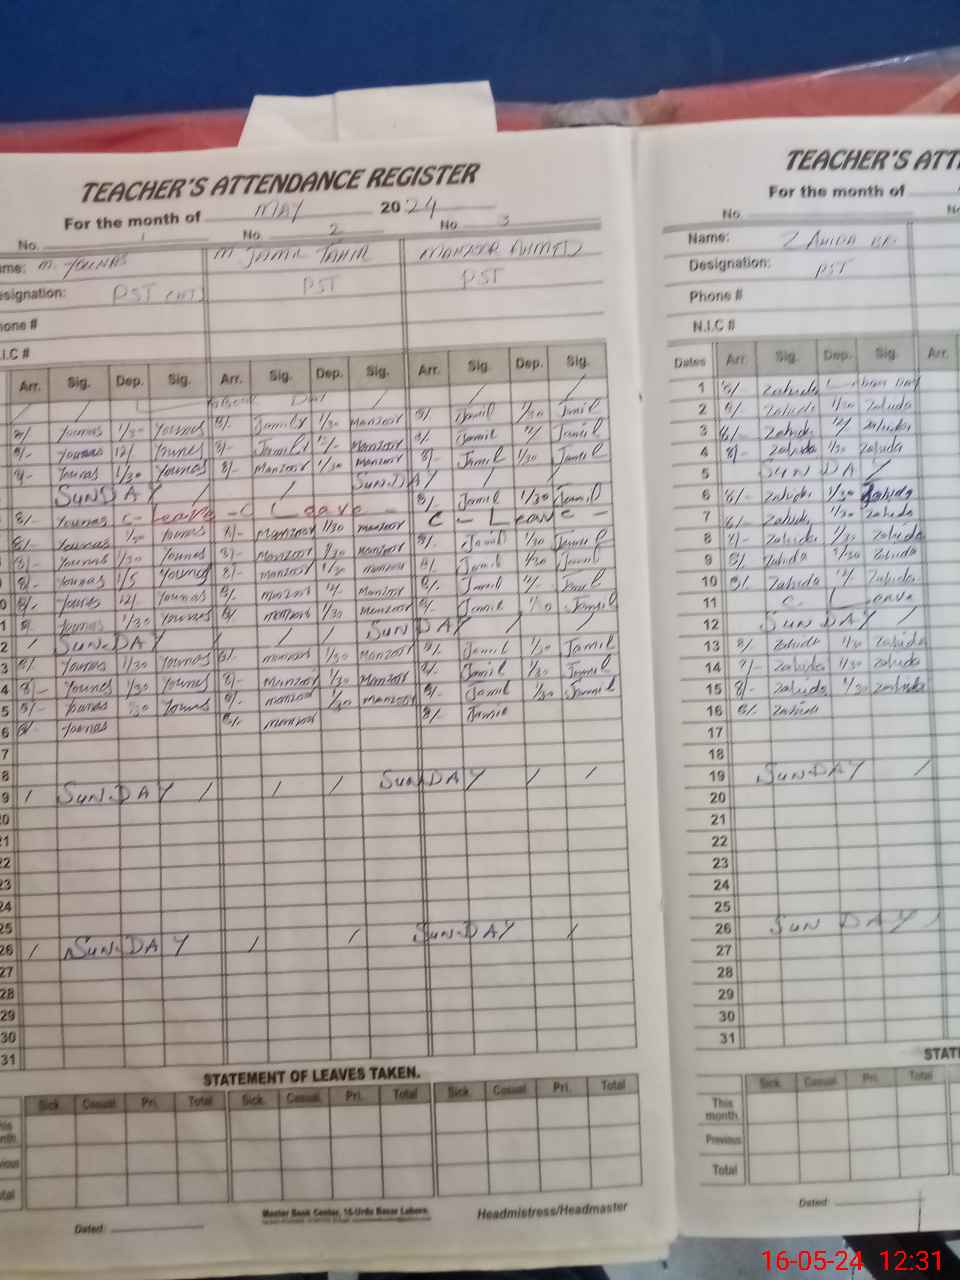 TEACHER'S ATTENDANCE REGISTER
For the month of MAY 2024
No. 1 No. 2 No. 3
ame: M. YOUNAS M. JAMIL TAHIR MANZOOR AHMED
esignation: PST PST PST
hone #
.I.C #
Arr. Sig. Dep. Sig. Arr. Sig. Dep. Sig. Arr. Sig. Dep. Sig.
/ / Labour Day / / /
8/- Younas 1/30 Younas 8/- Jamil 1/30 Manzoor 8/- Jamil 1/30 Jamil
8/- Younas 12/ Younas 8/- Jamil 12/- Manzoor 8/- Jamil 12/ Jamil
8/- Younas 1/30 Younas 8/- Manzoor 1/30 Manzoor 8/- Jamil 1/30 Jamil
SUNDAY / / SUNDAY /
8/- Younas C - Leave - C Leave - 8/- Jamil 1/30 Jamil
8/- Younas 1/30 Younas 8/- Manzoor 1/30 Manzoor C - Leave -
8/- Younas 1/30 Younas 8/- Manzoor 1/30 Manzoor 8/- Jamil 1/30 Jamil
8/- Younas Younas 8/- Manzoor 1/30 Manzoor 8/- Jamil 1/30 Jamil
0 8/- Younas 12/ Younas 8/- Manzoor 12/ Manzoor 8/- Jamil 12/- Jamil
1 8/- Younas 1/30 Younas 8/- Manzoor 1/30 Manzoor 8/- Jamil 1/30 Jamil
2 / SUNDAY / / / SUNDAY / /
3 8/- Younas 1/30 Younas 8/- Manzoor 1/30 Manzoor 8/- Jamil 1/30 Jamil
4 8/- Younas 1/30 Younas 8/- Manzoor 1/30 Manzoor 8/- Jamil 1/30 Jamil
5 8/- Younas 1/30 Younas 8/- Manzoor 1/30 Manzoor 8/- Jamil 1/30 Jamil
6 8/- Younas 8/- Manzoor 8/- Jamil
7
8
9 / SUNDAY / / / SUNDAY / /
20
21
22
23
24
25
26 / SUNDAY / / SUNDAY /
27
28
29
30
31
STATEMENT OF LEAVES TAKEN.
Sick Casual Pri. Total Sick Casual Pri. Total Sick Casual Pri. Total
his
nth.
vious
otal
Dated:
Master Book Center, 16-Urdu Bazar Lahore.
Headmistress/Headmaster
TEACHER'S ATT
For the month of
No. No
Name: Zahida Bi.
Designation: PST
Phone #
N.I.C #
Dates Arr. Sig. Dep. Sig. Arr.
1 8/- Zahida Labour Day
2 8/- Zahida 1/30 Zahida
3 8/- Zahida 12/ Zahida
4 8/- Zahida 1/30 Zahida
5 SUNDAY /
6 8/- Zahida 1/30 Zahida
7 8/- Zahida 1/30 Zahida
8 8/- Zahida 1/30 Zahida
9 8/- Zahida 1/30 Zahida
10 8/- Zahida 12/- Zahida
11 C. Leave
12 SUNDAY /
13 8/- Zahida 1/30 Zahida
14 8/- Zahida 1/30 Zahida
15 8/- Zahida 1/30 Zahida
16 8/- Zahida
17
18
19 SUNDAY /
20
21
22
23
24
25
26 SUNDAY /
27
28
29
30
31
STATE
Sick Casual Pri. Total Sick
This month.
Previous
Total
Dated:
16-05-24 12:31